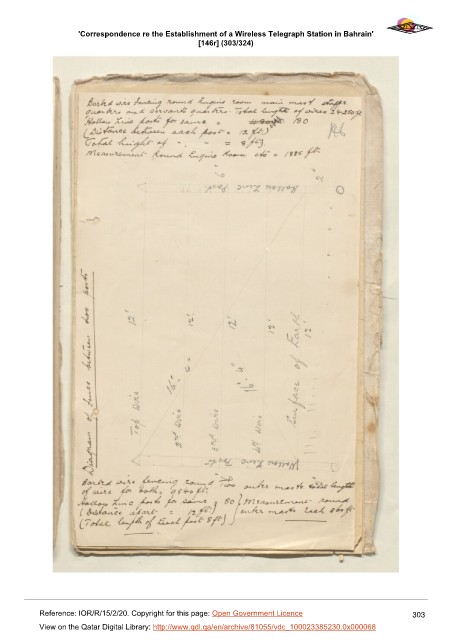 'Correspondence re the Establishment of a Wireless Telegraph Station in Bahrain'
[146r] (303/324)
Barbed wire fencing round Engine room main mast staffs
quarters and servants quarters. Total length of wires
Hollow Zinc posts for same = 180
(Distance between each post = 12 ft)
Total height of " " = 8 ft)
Measurement Round Engine Room etc = 1885 ft.
Hollow Zinc Post
Diagram of fence between two posts
Top Wire 12'
2nd Wire 12'
3rd Wire 12'
4th Wire 12'
Surface of Earth 12'
Hollow Zinc Post
Barbed wire fencing round Two outer masts total length
of wire for both, 9840 ft.
Hollow Zinc posts for same = 80 } Measurement round
(Distance apart = 12 ft) } outer masts Each
(Total length of Each post 8 ft)
Reference: IOR/R/15/2/20. Copyright for this page: Open Government Licence
303
View on the Qatar Digital Library: http://www.qdl.qa/en/archive/81055/vdc_100023385230.0x000068